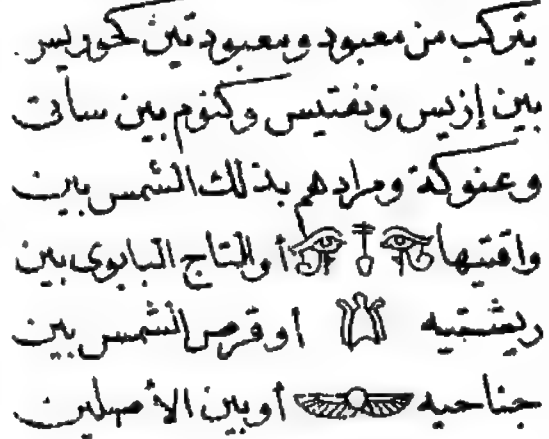 يتركب من معبود ومعبودتين كحوريس
بين إزيس ونفتيس وكنوم بين ساتت
وعنوكة ومرادهم بذلك الشمس بين
واقيتيها أو التاج البابوى بين
ريشتيه أو قرص الشمس بين
جناحيه أو بين الأصلين